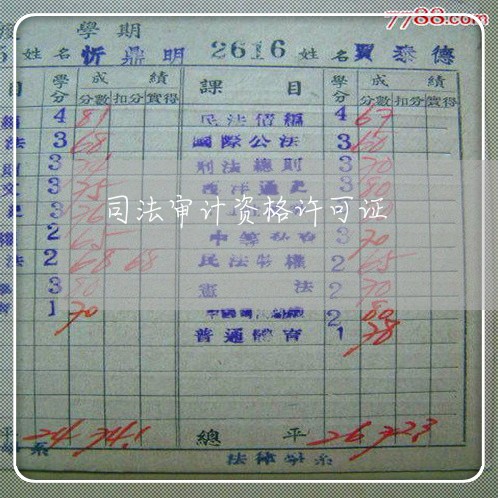 7788.com
學期
姓名 忻鼎明 2616 姓名 賈泰德
目 學分 成績 課目 學分 成績
分數 扣分 實得 分數 扣分 實得
4 81 民法債編 4 67
法 3 68 國際公法 3 60
3 刑法總則 3 70
3 75 西洋通史 3 80
3 76
司法审计资格许可证
2 65 3 70
法 2 68 68 民法物權 2 65
3 80 憲法 2 70
1 70 2 80
普通體育 1 78
平 24 74.1 總平 26 72.3
系 法律學系